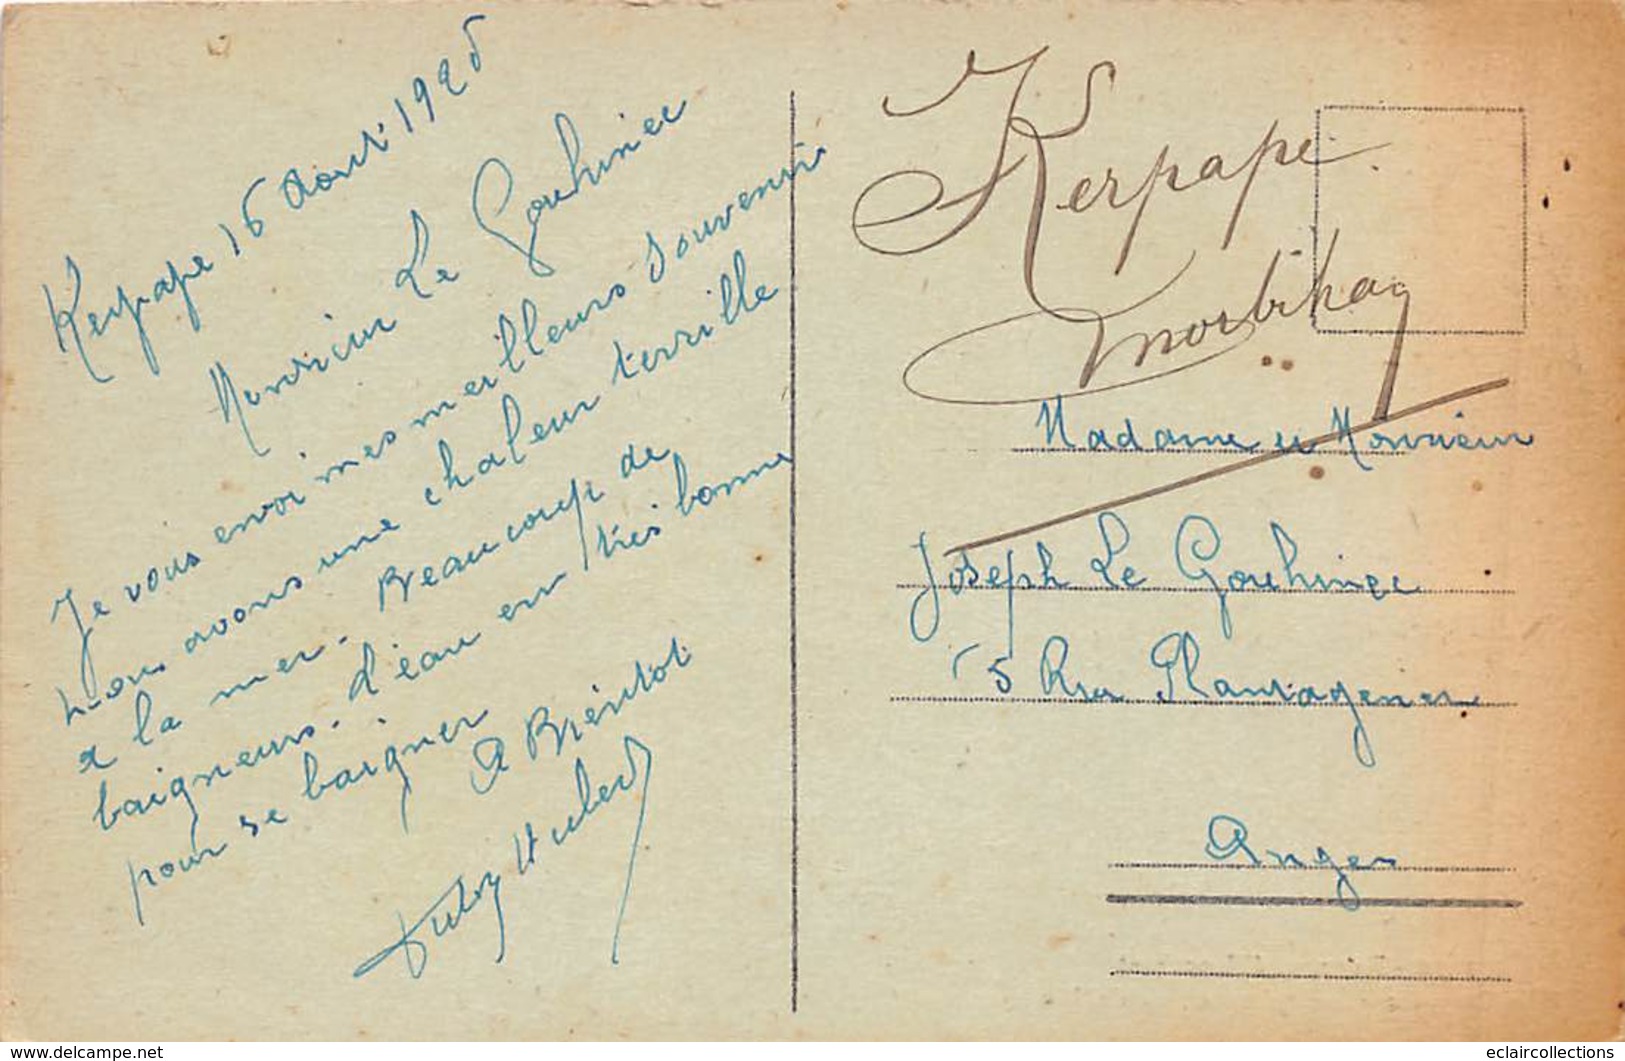 Kerpape 16 Aout 1926
Monsieur Le Gouhinec
Je vous envoi mes meilleurs souvenir
nous avons une chaleur terrible
a la mer. Beaucoup de
baigneurs. d'eau en très bonne
pour se baigner
A Bientot
Hubert
Kerpape
Morbihan
Madame et Monsieur
Joseph Le Gouhinec
15 Rue Plantagenet
Angers
www.delcampe.net
eclaircollections